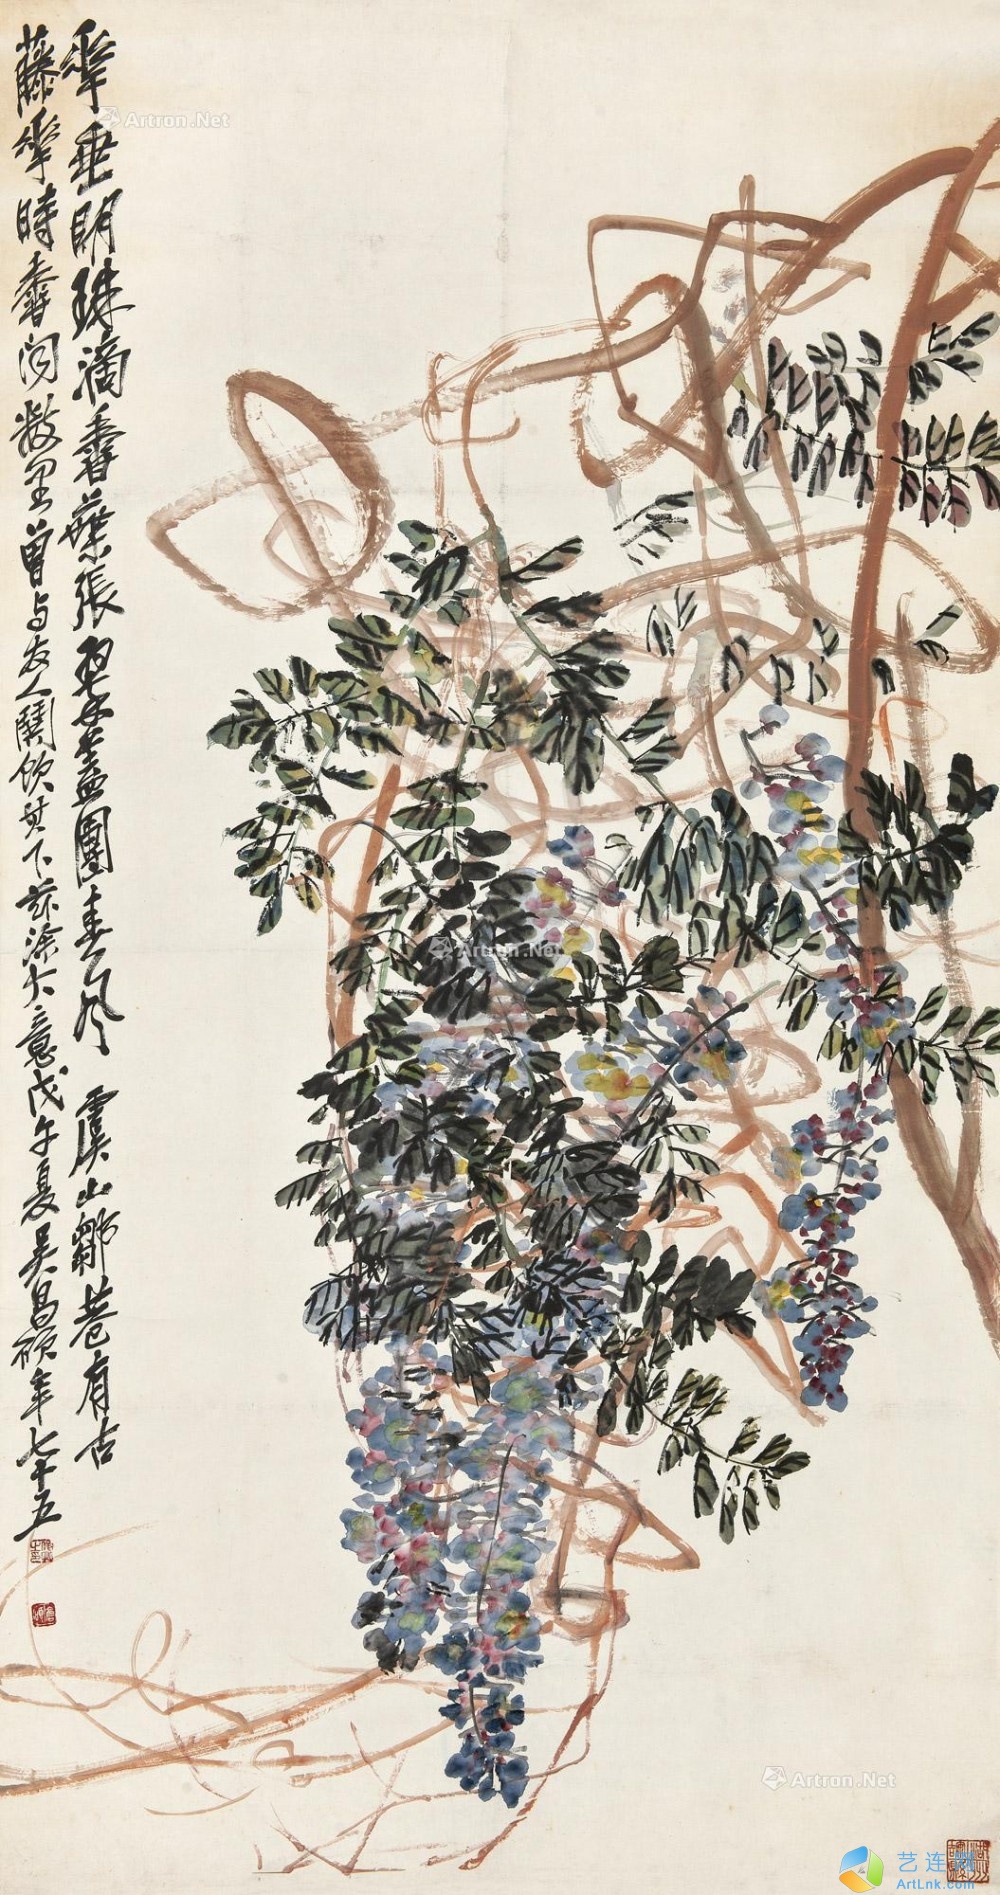 華垂明珠滴香葉張翠蓋團春風 虞山鄒巷有古
藤華時香聞數里曾与友人鬭飲其下茲涂大意戊午夏吳昌碩年七十五
Artron.Net
Artron.Net
Artron.Net
艺连网
ArtLnk.com